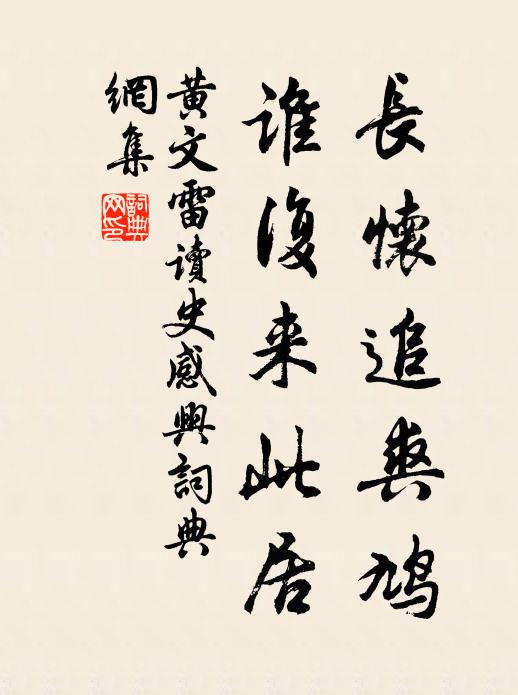 長懷追爽鳩
誰復来此居
黄文雷讀史感興詞典
網集
詞典网印